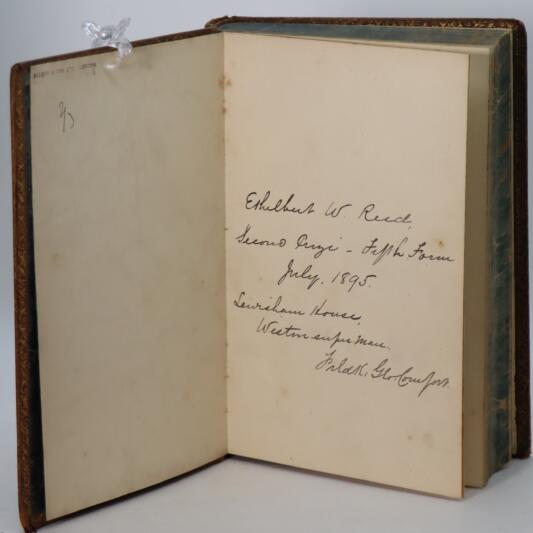 7/3
Ethelbert W. Reed,
Second Prize - Fifth Form
July, 1895.
Lewisham House,
Weston-super-Mare.
Comfort.